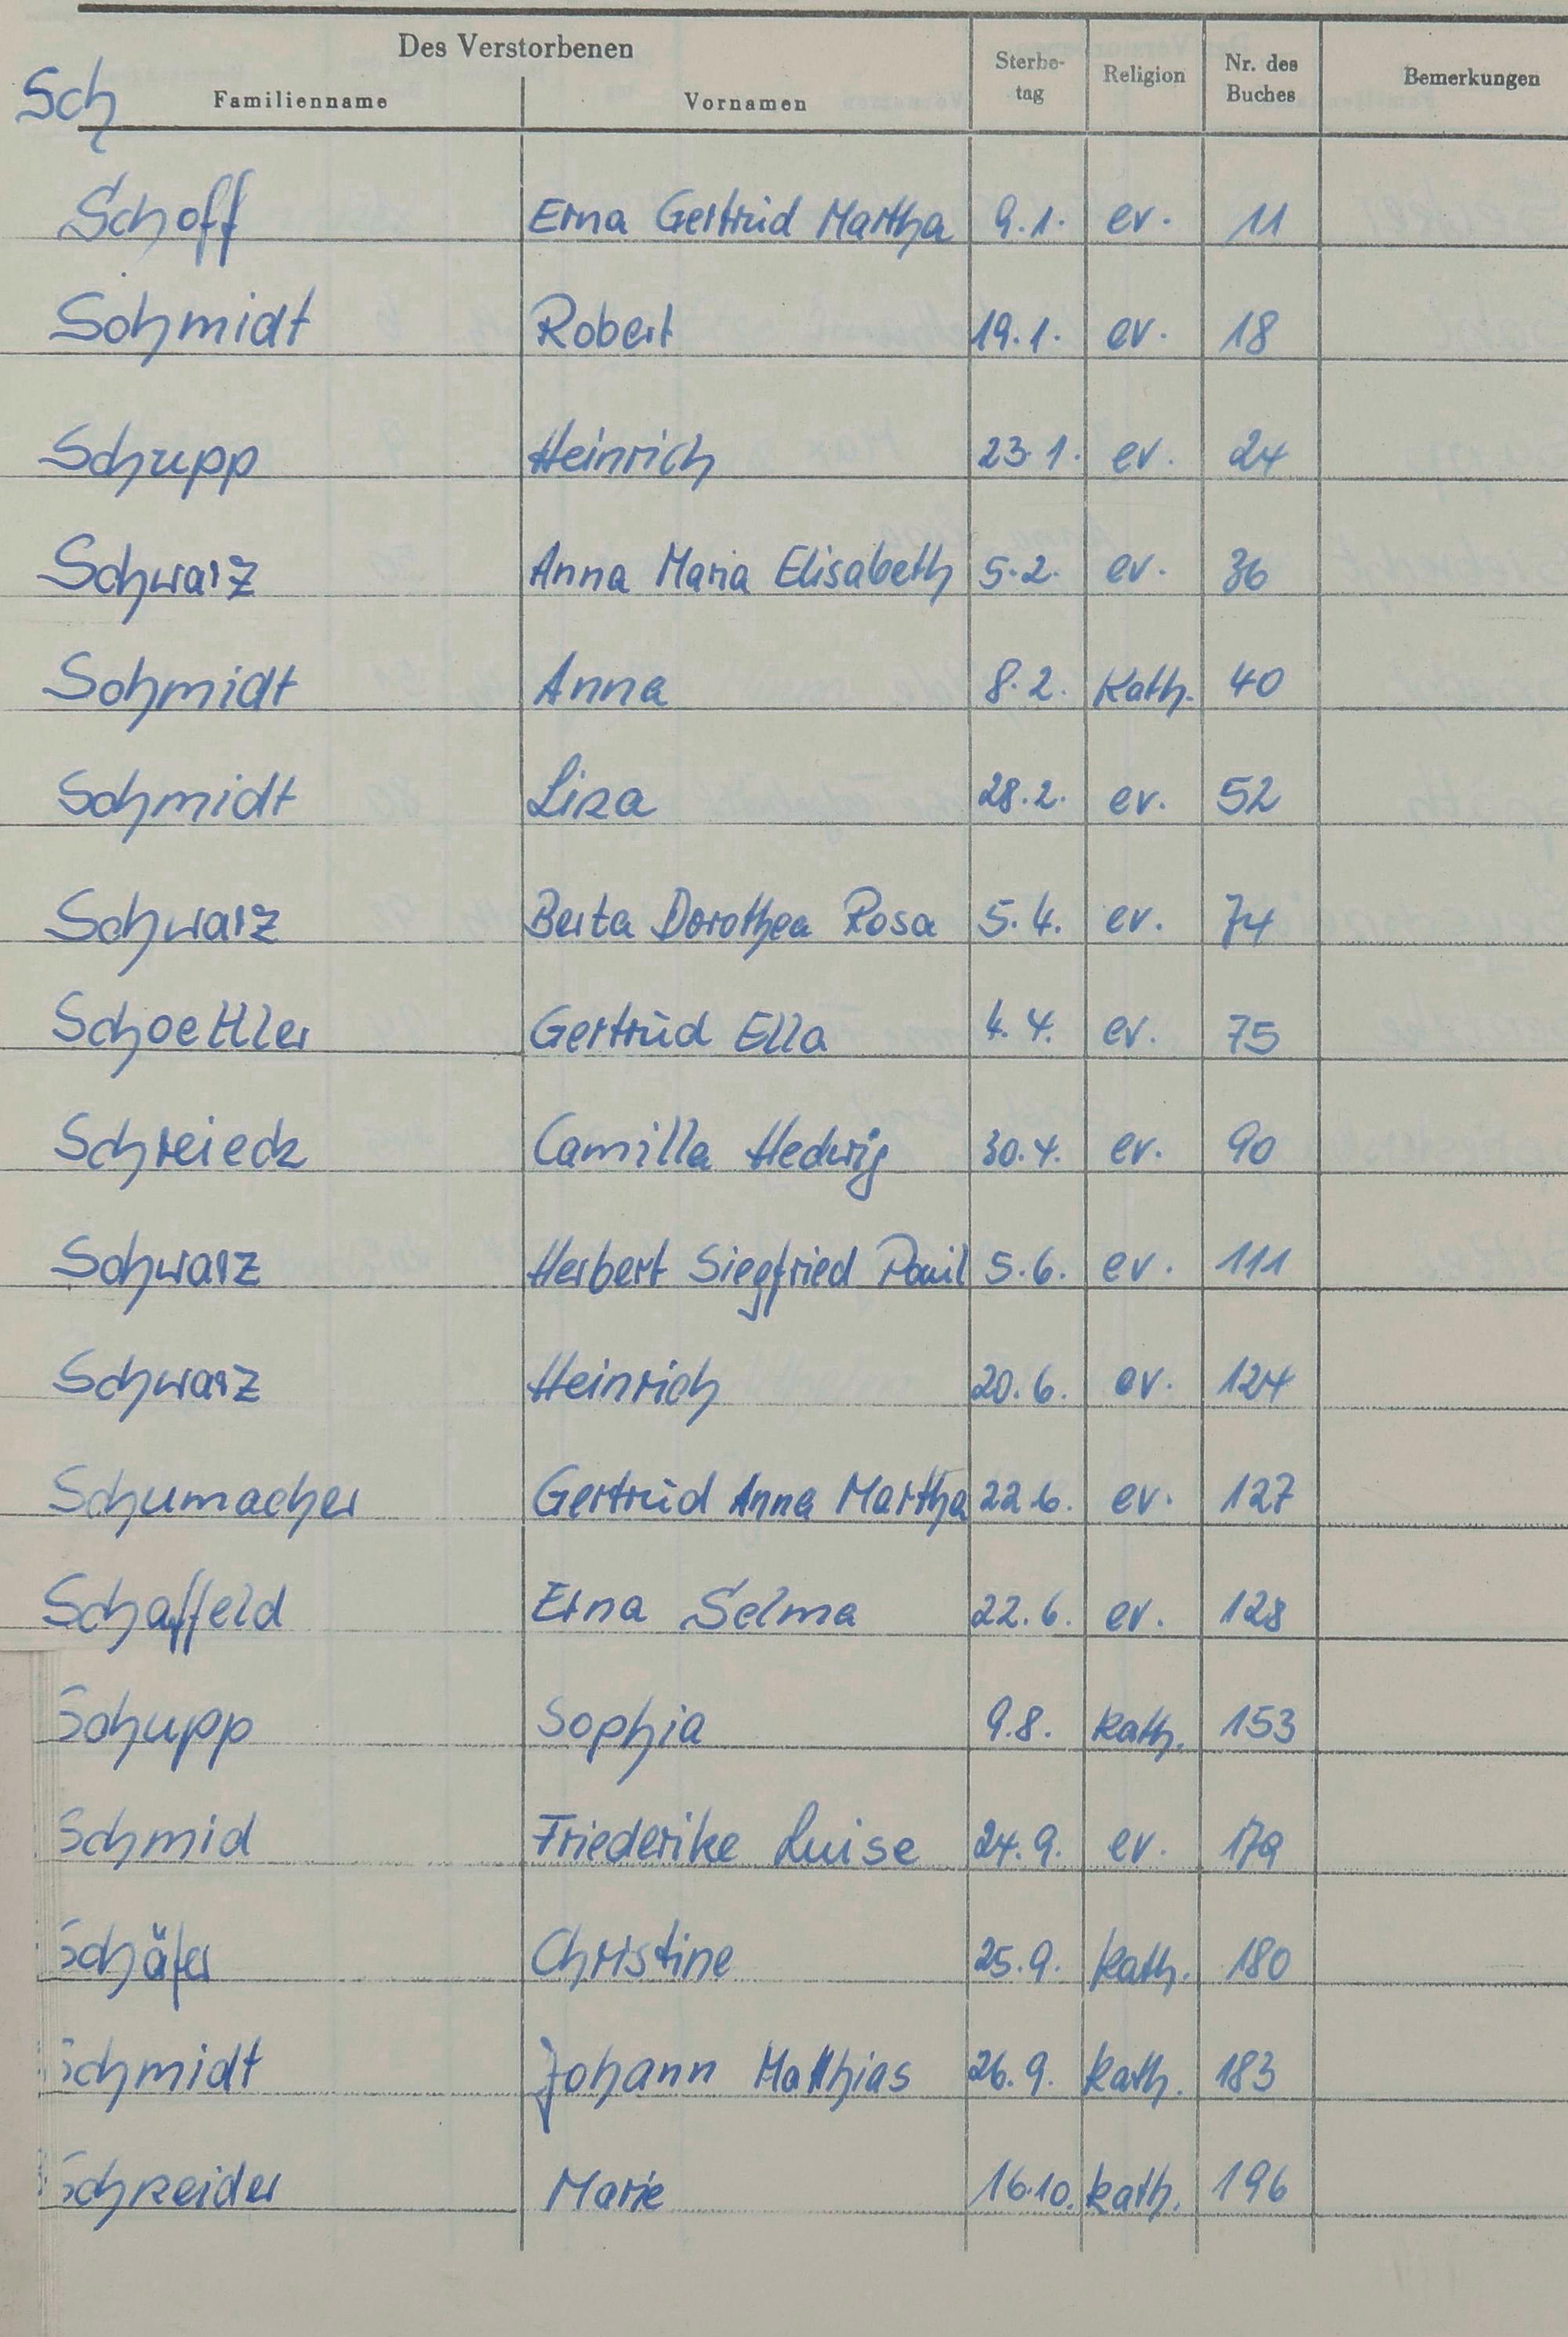 Des Verstorbenen
Sch Familienname Vornamen Sterbe-tag Religion Nr. des Buches Bemerkungen
Schoff Erna Gertrud Martha 9.1. ev. 11
Schmidt Robert 19.1. ev. 18
Schupp Heinrich 23.1. ev. 24
Schwarz Anna Maria Elisabeth 5.2. ev. 36
Schmidt Anna 8.2. Kath. 40
Schmidt Lina 28.2. ev. 52
Schwarz Berta Dorothea Rosa 5.4. ev. 74
Schoettler Gertrud Ella 4.4. ev. 75
Schreieck Camilla Hedwig 30.4. ev. 90
Schwarz Herbert Siegfried Paul 5.6. ev. 111
Schwarz Heinrich 20.6. ev. 124
Schumacher Gertrud Anna Martha 22.6. ev. 127
Schaffeld Erna Selma 22.6. ev. 128
Schupp Sophia 9.8. kath. 153
Schmid Friederike Luise 24.9. ev. 179
Schäfer Christine 25.9. kath. 180
Schmidt Johann Matthias 26.9. kath. 183
Schneider Marie 16.10. kath. 196